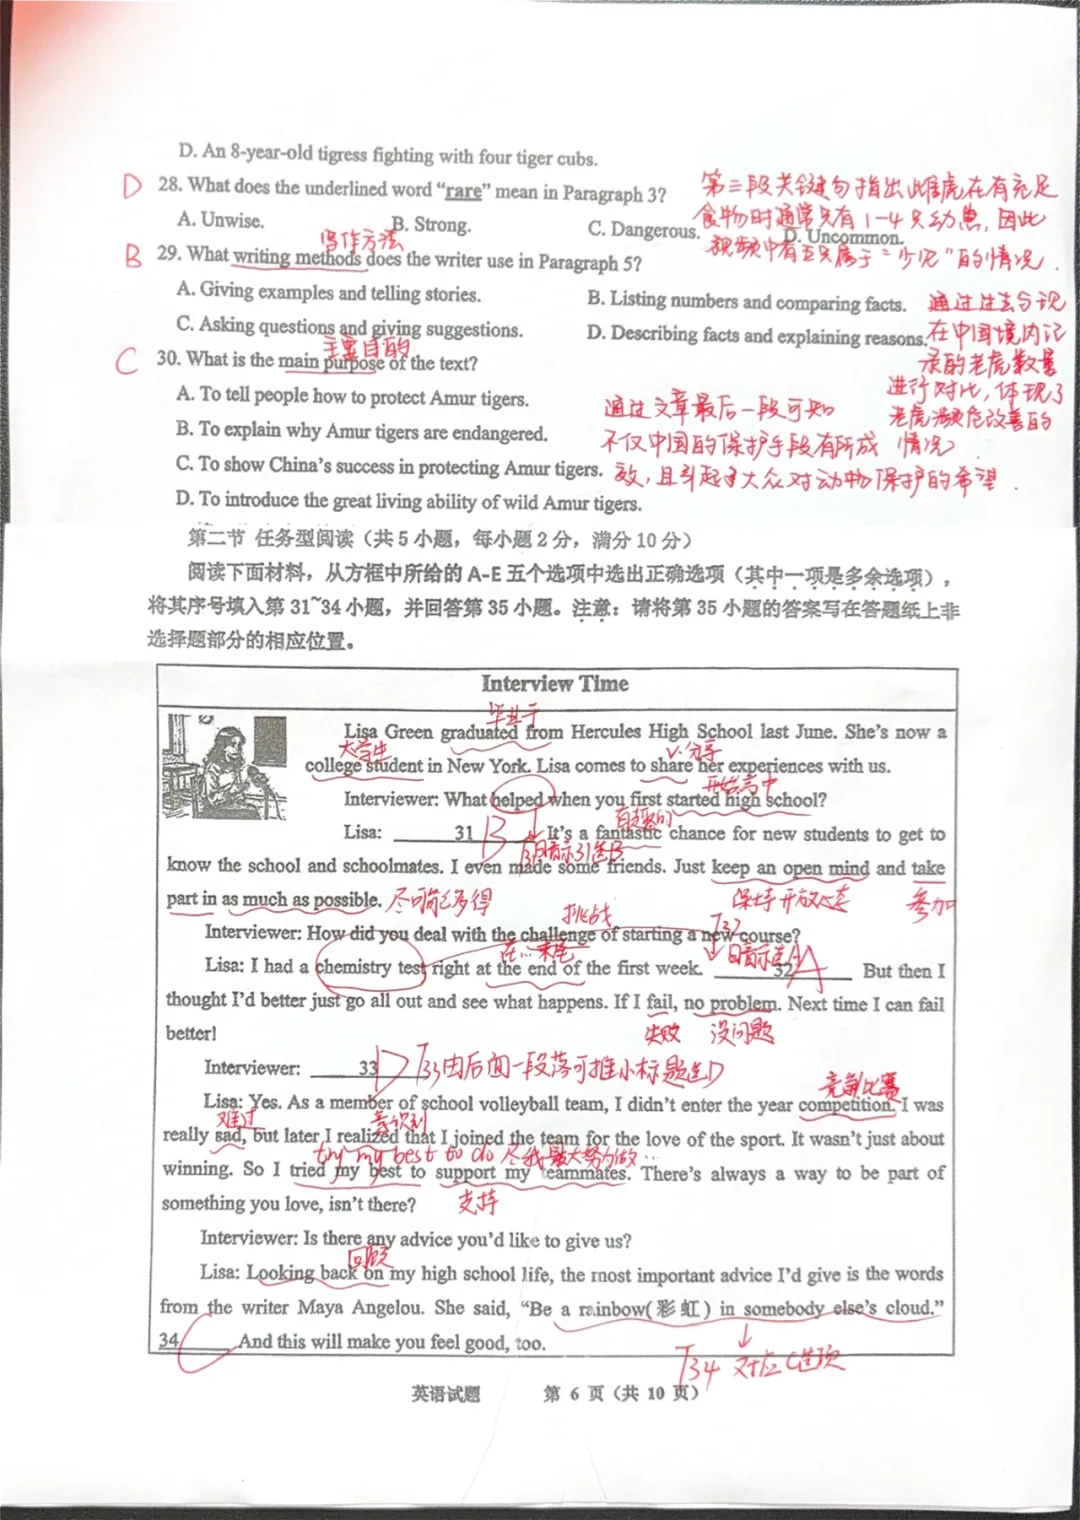 D. An 8-year-old tigress fighting with four tiger cubs.
D 28. What does the underlined word “rare” mean in Paragraph 3?
第三段关键句指出雌虎在有充足
A. Unwise. B. Strong. C. Dangerous. D. Uncommon.
食物时通常只有1-4只幼崽,因此
视频中有五只属于“少见”的情况.
写作方法
B 29. What writing methods does the writer use in Paragraph 5?
A. Giving examples and telling stories. B. Listing numbers and comparing facts.
通过过去与现
C. Asking questions and giving suggestions. D. Describing facts and explaining reasons.
在中国境内记
录的老虎数量
进行对比,体现了
老虎濒危改善的
情况
主要目的
C 30. What is the main purpose of the text?
A. To tell people how to protect Amur tigers.
通过文章最后一段可知
B. To explain why Amur tigers are endangered.
不仅中国的保护手段有所成
C. To show China’s success in protecting Amur tigers.
效,且引起了大众对动物保护的希望.
D. To introduce the great living ability of wild Amur tigers.
第二节 任务型阅读(共5小题,每小题2分,满分10分)
阅读下面材料,从方框中所给的A-E五个选项中选出正确选项(其中一项是多余选项),
将其序号填入第31~34小题,并回答第35小题。注意:请将第35小题的答案写在答题纸上非
选择题部分的相应位置。
Interview Time
毕业于
Lisa Green graduated from Hercules High School last June. She’s now a
大学生 v.分享
college student in New York. Lisa comes to share her experiences with us.
开始高中
Interviewer: What helped when you first started high school?
有趣的
Lisa: 31 B It’s a fantastic chance for new students to get to
暗示31选B
know the school and schoolmates. I even made some friends. Just keep an open mind and take
part in as much as possible. 尽可能多得 保持开放心态 参加
挑战 T32
Interviewer: How did you deal with the challenge of starting a new course?
在…末尾 暗示选A
Lisa: I had a chemistry test right at the end of the first week. 32 A But then I
thought I’d better just go all out and see what happens. If I fail, no problem. Next time I can fail
失败 没问题
better!
Interviewer: 33 D T33由后面一段落可推小标题选D
竞争比赛
Lisa: Yes. As a member of school volleyball team, I didn’t enter the year competition. I was
难过 意识到
really sad, but later I realized that I joined the team for the love of the sport. It wasn’t just about
try my best to do 尽我最大努力做…
winning. So I tried my best to support my teammates. There’s always a way to be part of
支持
something you love, isn’t there?
Interviewer: Is there any advice you’d like to give us?
回顾
Lisa: Looking back on my high school life, the most important advice I’d give is the words
from the writer Maya Angelou. She said, “Be a rainbow(彩虹) in somebody else’s cloud.”
34 C And this will make you feel good, too.
T34 对应C选项
英语试题 第 6 页(共 10 页)